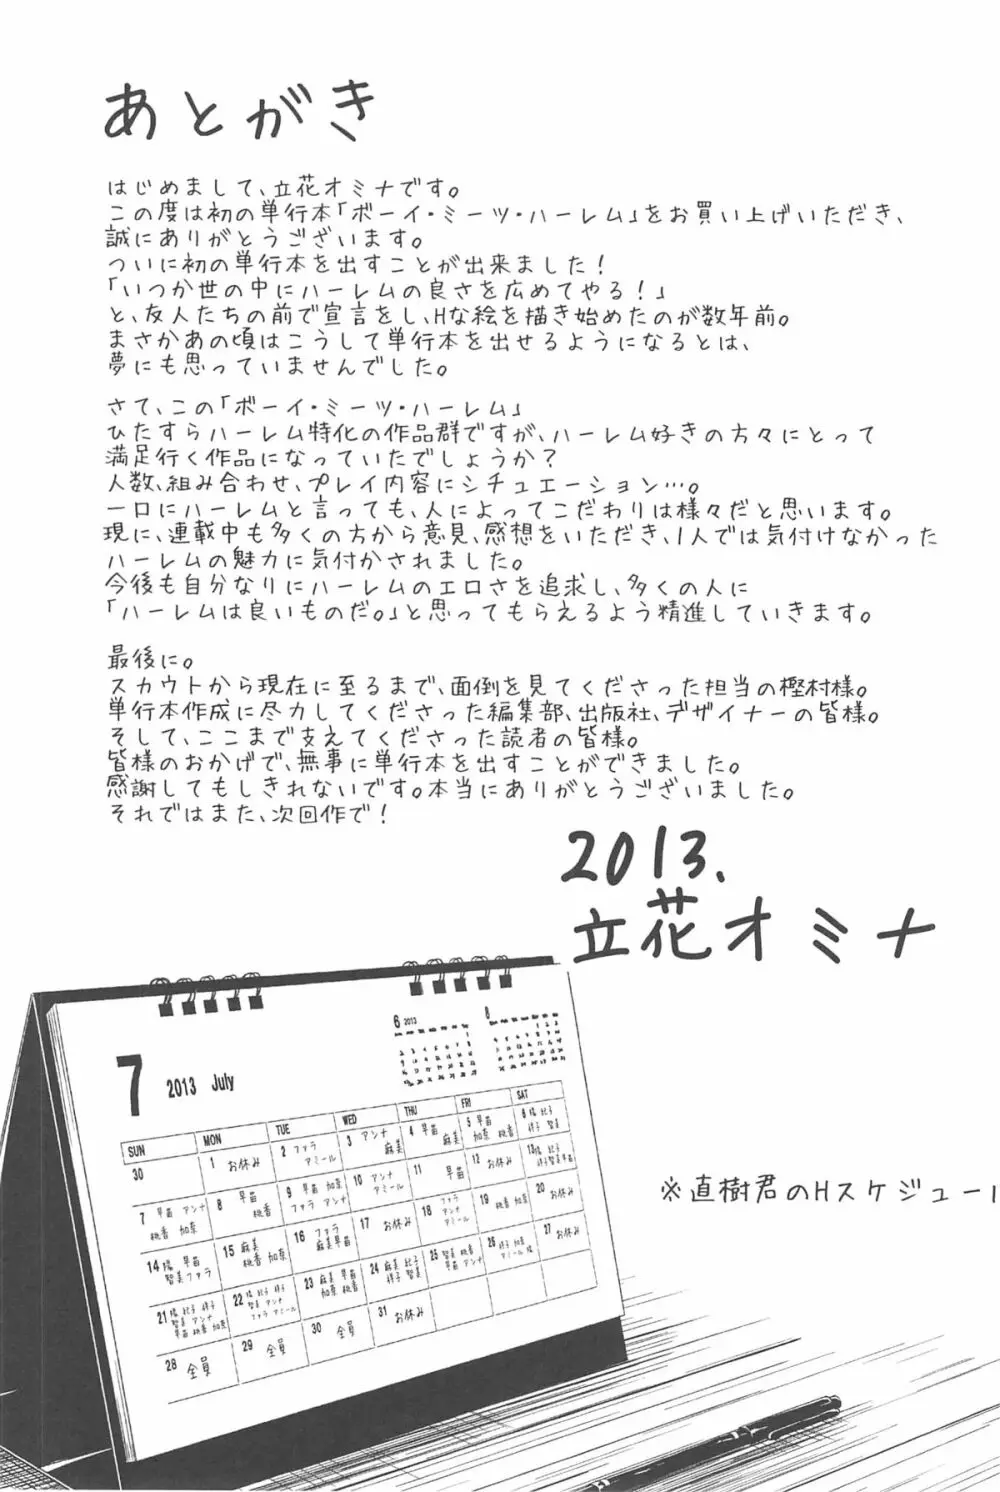 あとがき
はじめまして、立花オミナです。
この度は初の単行本「ボーイ・ミーツ・ハーレム」をお買い上げいただき、
誠にありがとうございます。
ついに初の単行本を出すことが出来ました！
「いつか世の中にハーレムの良さを広めてやる！」
と、友人たちの前で宣言をし、Hな絵を描き始めたのが数年前。
まさかあの頃はこうして単行本を出せるようになるとは、
夢にも思っていませんでした。
さて、この「ボーイ・ミーツ・ハーレム」
ひたすらハーレム特化の作品群ですが、ハーレム好きの方々にとって
満足行く作品になっていたでしょうか？
人数、組み合わせ、プレイ内容にシチュエーション…。
一口にハーレムと言っても、人によってこだわりは様々だと思います。
現に、連載中も多くの方から意見、感想をいただき、1人では気付けなかった
ハーレムの魅力に気付かされました。
今後も自分なりにハーレムのエロさを追求し、多くの人に
「ハーレムは良いものだ。」と思ってもらえるよう精進していきます。
最後に。
スカウトから現在に至るまで、面倒を見てくださった担当の樫村様。
単行本作成に尽力してくださった編集部、出版社、デザイナーの皆様。
そして、ここまで支えてくださった読者の皆様。
皆様のおかげで、無事に単行本を出すことができました。
感謝してもしきれないです。本当にありがとうございました。
それではまた、次回作で！
2013.
立花オミナ
6 2013
8
7 2013 July
SUN MON TUE WED THU FRI SAT
30 1 お休み 2 ファラ アミール 3 アンナ 麻美 4 早苗 麻美 5 早苗 加奈 桃香 6
7 早苗 アンナ 桃香 加奈 8 早苗 桃香 9 早苗 加奈 ファラ アンナ 10 アンナ アミール 11 早苗 12 お休み 13
14 早苗 智美 ファラ 15 麻美 桃香 加奈 16 ファラ 麻美 早苗 17 お休み 18 ファラ アンナ アミール 19 桃香 加奈 20 お休み
21 智美 アンナ 早苗 桃香 加奈 22 智美 アンナ ファラ アミール 23 麻美 早苗 加奈 桃香 24 麻美 祥子 智美 25 智美 桃香 早苗 アンナ 26 加奈 アミール 27 お休み
28 全員 29 全員 30 全員 31 お休み
※直樹君のHスケジュール